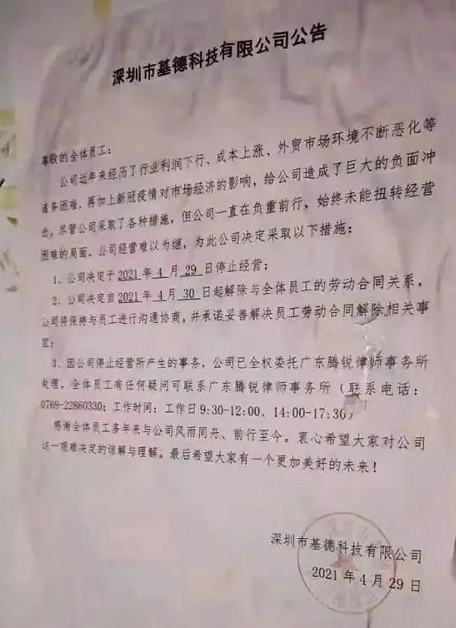 深圳市基德科技有限公司公告
尊敬的全体员工：
公司近年来经历了行业利润下行、成本上涨、外贸市场环境不断恶化等
诸多困难，再加上新冠疫情对市场经济的影响，给公司造成了巨大的负面冲
击，尽管公司采取了各种措施，但公司一直在负重前行，始终未能扭转经营
困难的局面，公司经营难以为继，为此公司决定采取以下措施：
1、公司决定于2021年4月29日停止经营；
2、公司决定自2021年4月30日起解除与全体员工的劳动合同关系，
公司将保持与员工进行沟通协商，并承诺妥善解决员工劳动合同解除相关事
宜；
3、因公司停止经营所产生的事务，公司已全权委托广东腾锐律师事务所
处理。全体员工有任何疑问可联系广东腾锐律师事务所（联系电话：
0769-22860330；工作时间：工作日9:30-12:00、14:00-17:30）
感谢全体员工多年来与公司风雨同舟、前行至今。衷心希望大家对公司
这一艰难决定的谅解与理解。最后希望大家有一个更加美好的未来！
深圳市基德科技有限公司
2021年4月29日